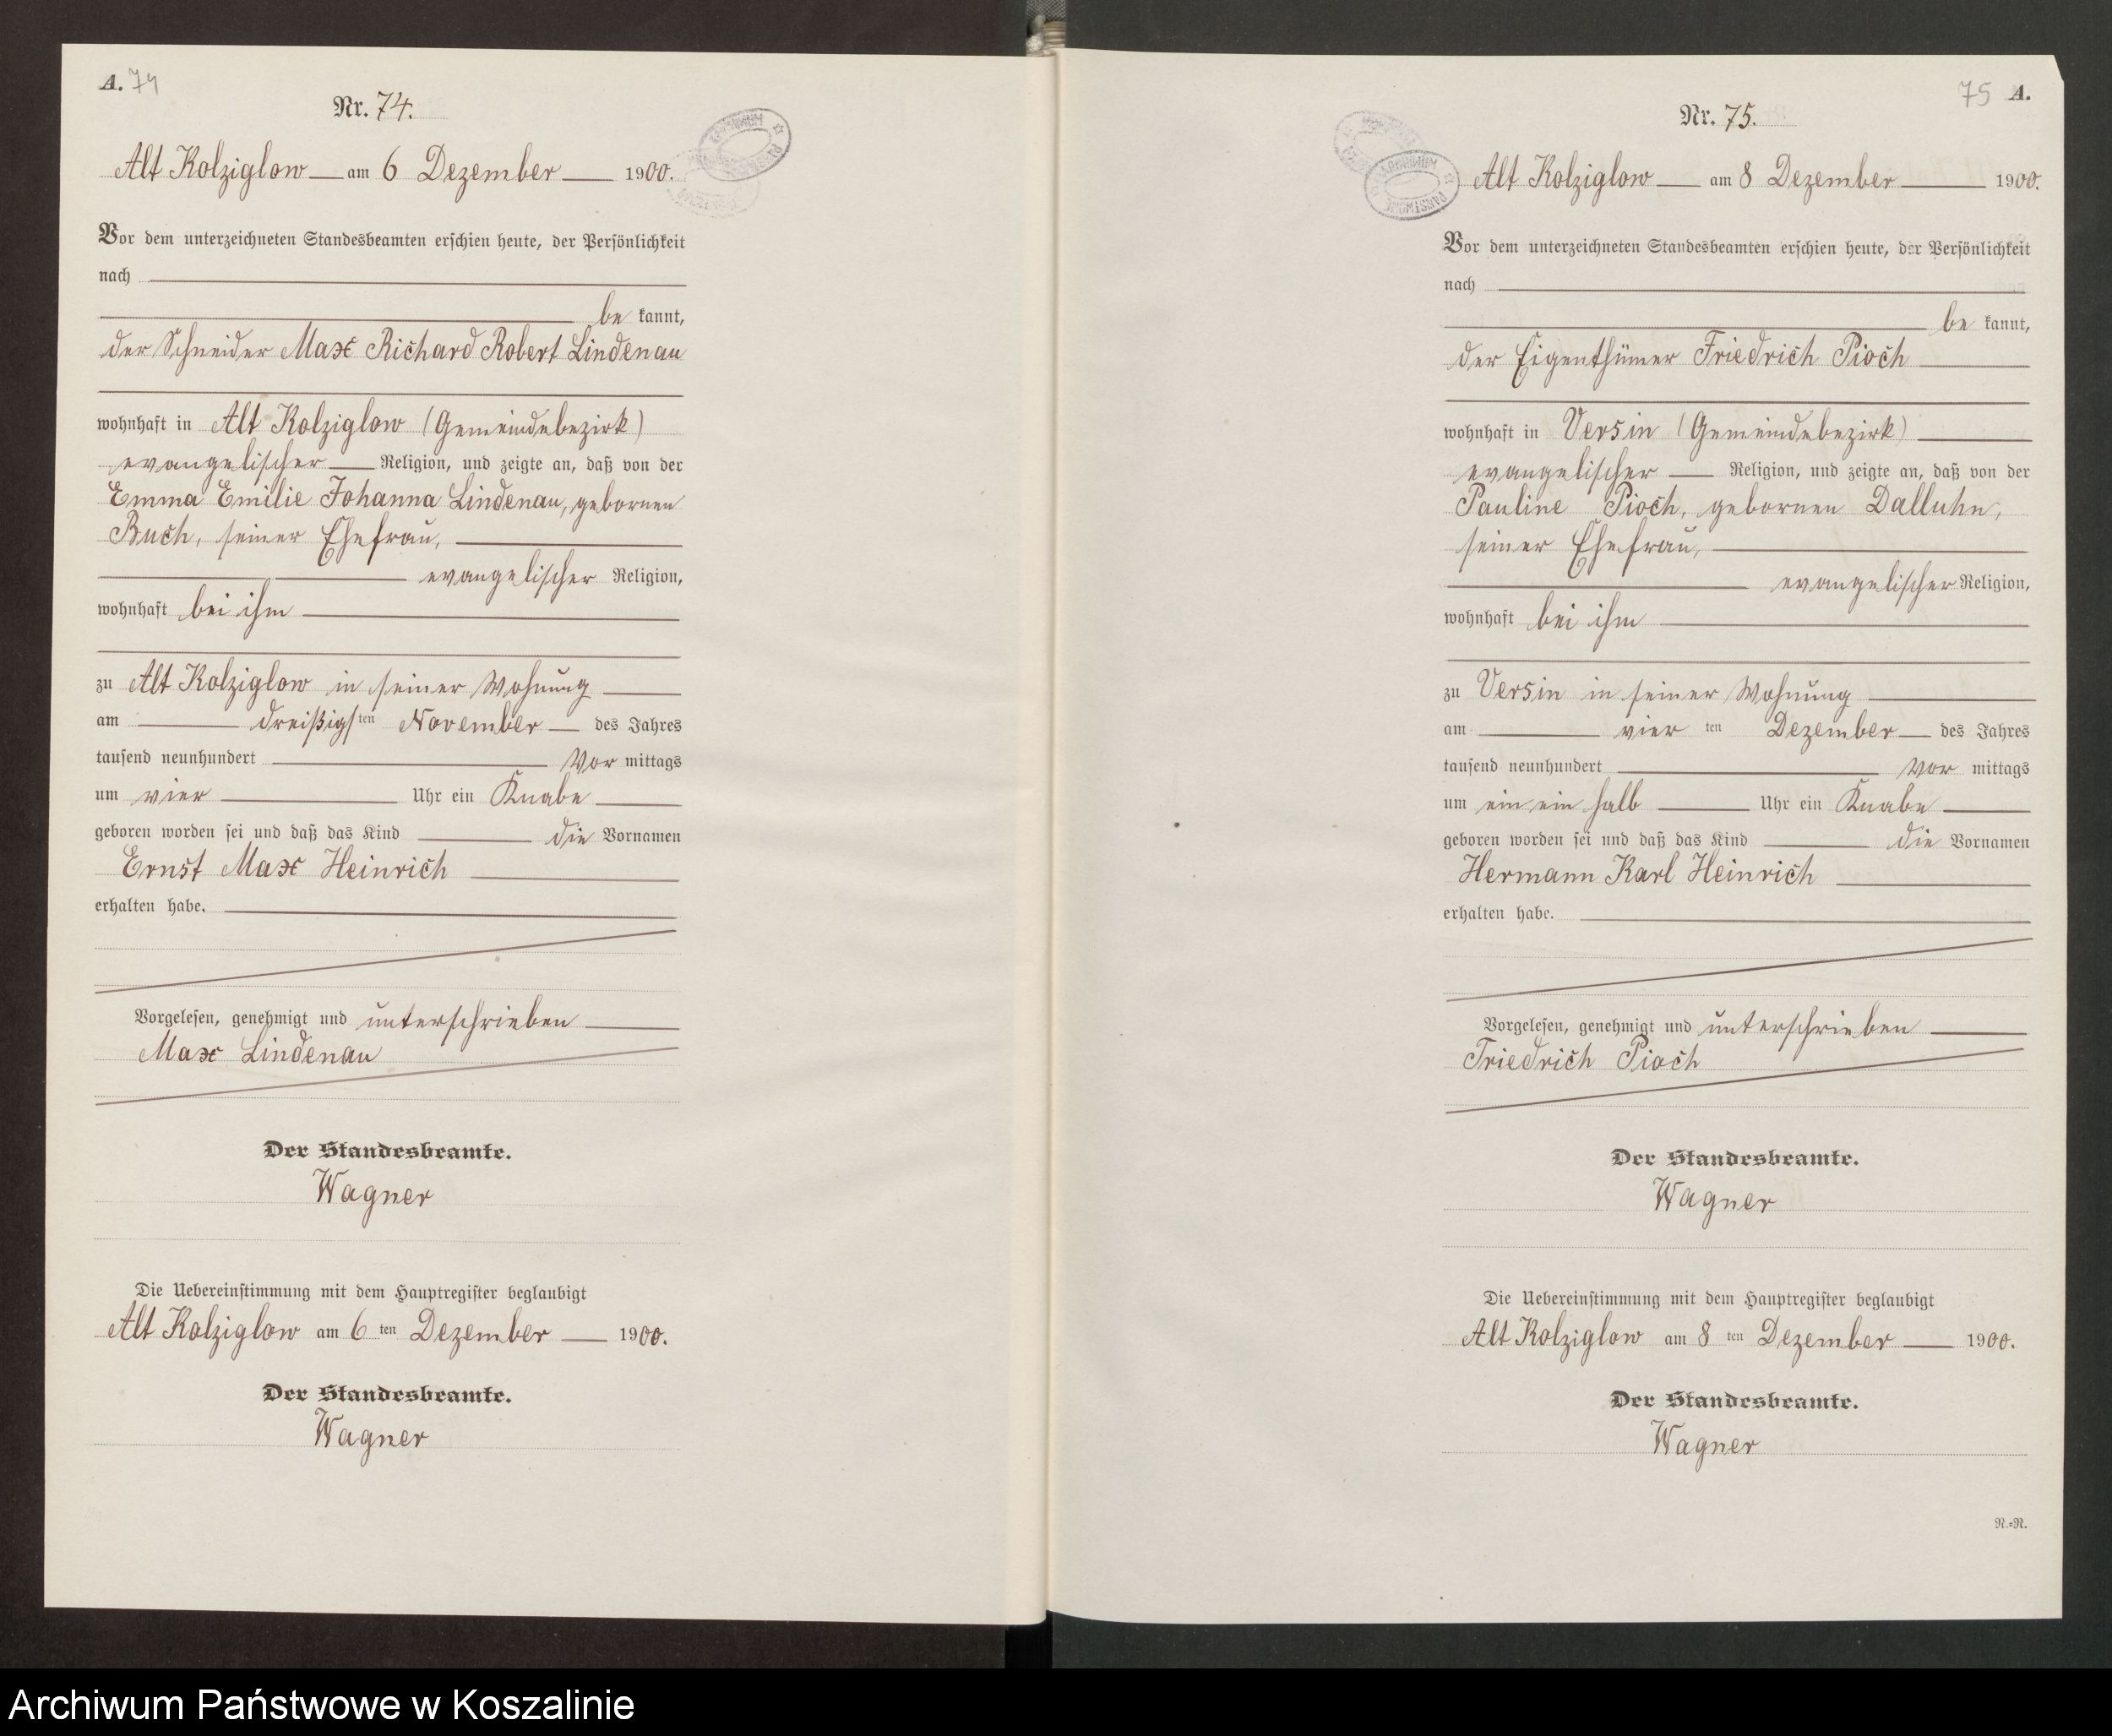 A. 74
Nr. 74.
Alt Kolziglow am 6 Dezember 1900.
Vor dem unterzeichneten Standesbeamten erschien heute, der Persönlichkeit
nach
be kannt,
der Schneider Max Richard Robert Lindenau
wohnhaft in Alt Kolziglow (Gemeindebezirk)
evangelischer Religion, und zeigte an, daß von der
Emma Emilie Johanna Lindenau, gebornen
Buch, seiner Ehefrau,
evangelischer Religion,
wohnhaft bei ihm
zu Alt Kolziglow in seiner Wohnung
am dreißigsten November des Jahres
tausend neunhundert Vor mittags
um vier Uhr ein Knabe
geboren worden sei und daß das Kind die Vornamen
Ernst Max Heinrich
erhalten habe.
Vorgelesen, genehmigt und unterschrieben
Max Lindenau
Der Standesbeamte.
Wagner
Die Uebereinstimmung mit dem Hauptregister beglaubigt
Alt Kolziglow am 6 ten Dezember 1900.
Der Standesbeamte.
Wagner
75 A.
Nr. 75.
Alt Kolziglow am 8 Dezember 1900.
Vor dem unterzeichneten Standesbeamten erschien heute, der Persönlichkeit
nach
be kannt,
der Eigenthümer Friedrich Pioch
wohnhaft in Versin (Gemeindebezirk)
evangelischer Religion, und zeigte an, daß von der
Pauline Pioch, gebornen Dalluhn,
seiner Ehefrau,
evangelischer Religion,
wohnhaft bei ihm
zu Versin in seiner Wohnung
am vier ten Dezember des Jahres
tausend neunhundert Vor mittags
um ein ein halb Uhr ein Knabe
geboren worden sei und daß das Kind die Vornamen
Hermann Karl Heinrich
erhalten habe.
Vorgelesen, genehmigt und unterschrieben
Friedrich Pioch
Der Standesbeamte.
Wagner
Die Uebereinstimmung mit dem Hauptregister beglaubigt
Alt Kolziglow am 8 ten Dezember 1900.
Der Standesbeamte.
Wagner
N.=N.
Archiwum Państwowe w Koszalinie